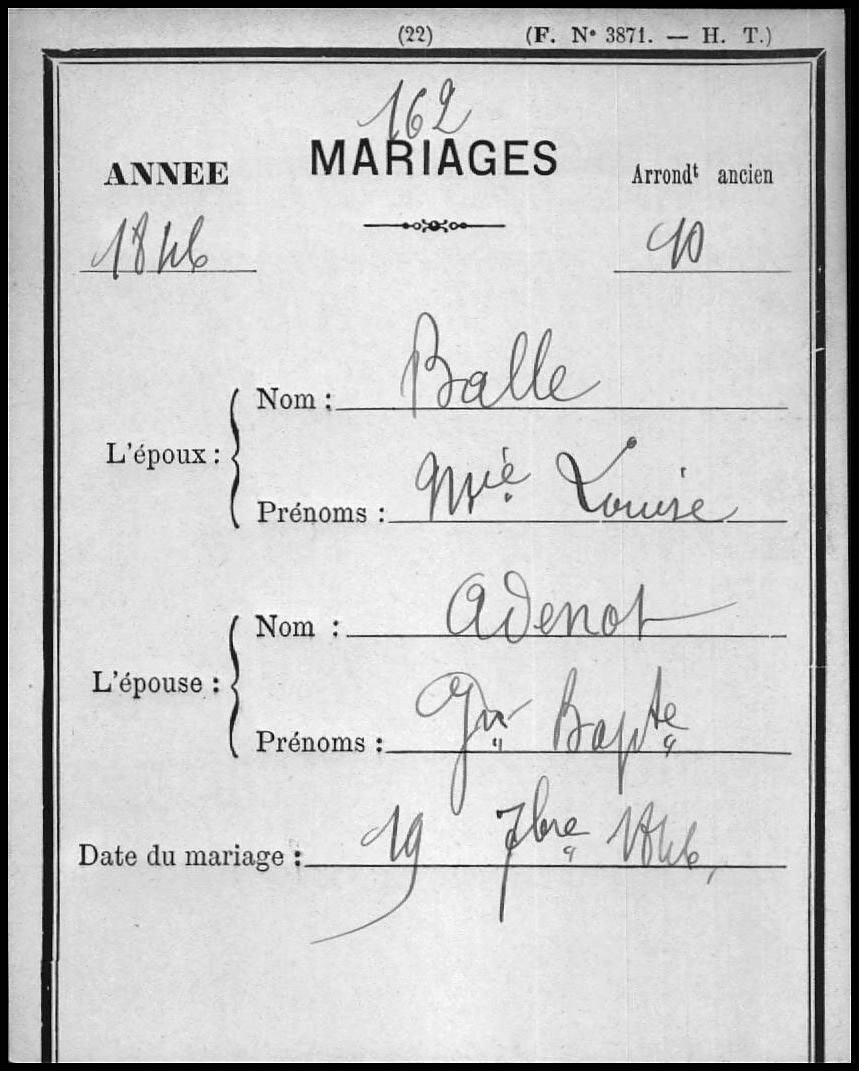 (22) (F. N° 3871. — H. T.)
162
MARIAGES
ANNEE Arrondt ancien
1846 10
L'époux :
Nom : Balle
Prénoms : Mie Louise
L'épouse :
Nom : Adenot
Prénoms : Jn Bapte
Date du mariage : 19 7bre 1846,